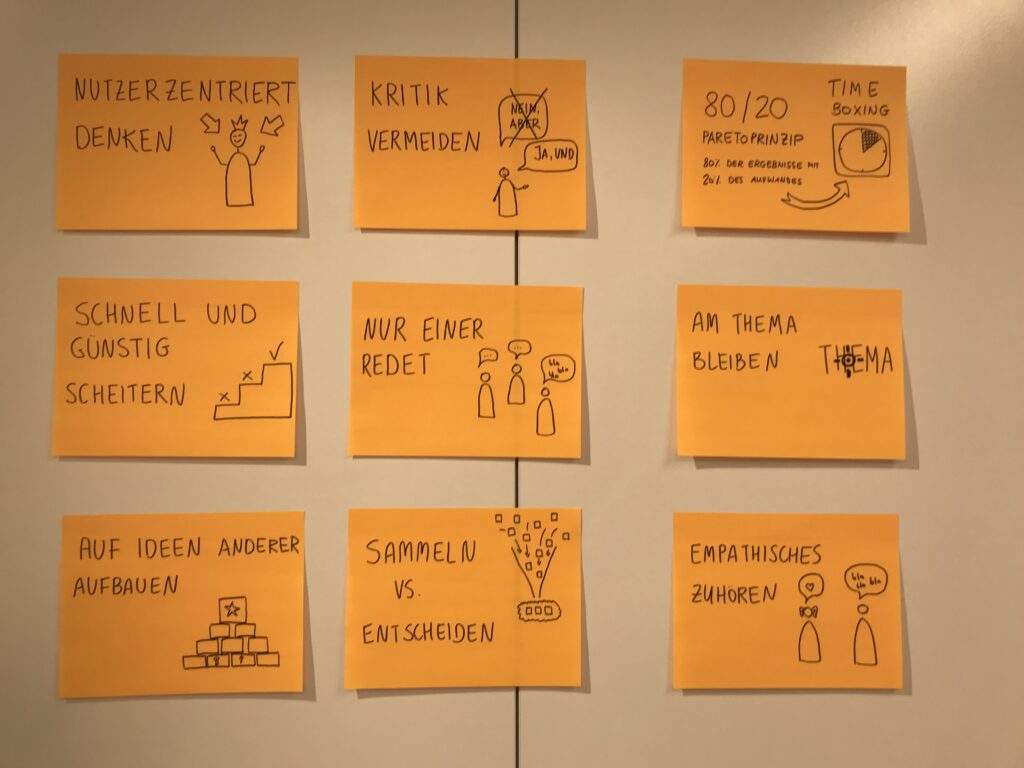 NUTZERZENTRIERT
DENKEN
KRITIK
VERMEIDEN
NEIN,
ABER
JA, UND
80/20
PARETOPRINZIP
80% DER ERGEBNISSE MIT
20% DES AUFWANDES
TIME
BOXING
SCHNELL UND
GÜNSTIG
SCHEITERN
NUR EINER
REDET
...
...
bla
bla bla
AM THEMA
BLEIBEN
THEMA
AUF IDEEN ANDERER
AUFBAUEN
SAMMELN
VS.
ENTSCHEIDEN
EMPATHISCHES
ZUHÖREN
bla
bla bla